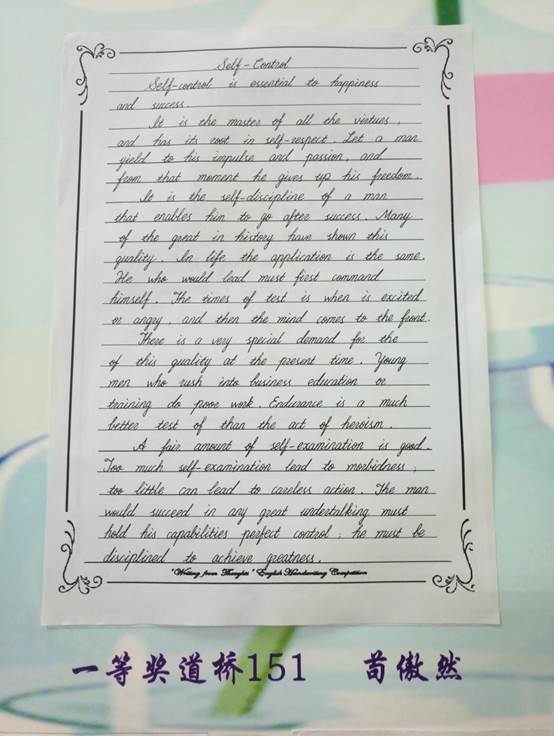 Self-Control
Self-control is essential to happiness
and success.
It is the master of all the virtues,
and has its root in self-respect. Let a man
yield to his impulse and passion, and
from that moment he gives up his freedom.
It is the self-discipline of a man
that enables him to go after success. Many
of the great in history have shown this
quality. In life the application is the same.
He who would lead must first command
himself. The times of test is when is excited
or angry, and then the mind comes to the front.
There is a very special demand for the
of this quality at the present time. Young
men who rush into business education or
training do poor work. Endurance is a much
better test of than the act of heroism.
A fair amount of self-examination is good.
Too much self-examination lead to morbidness;
too little can lead to careless action. The man
would succeed in any great undertalking must
hold his capabilities perfect control; he must be
disciplined to achieve greatness.
"Writing from Thoughts" English Handwriting Competition
一等奖道桥151 苟傲然